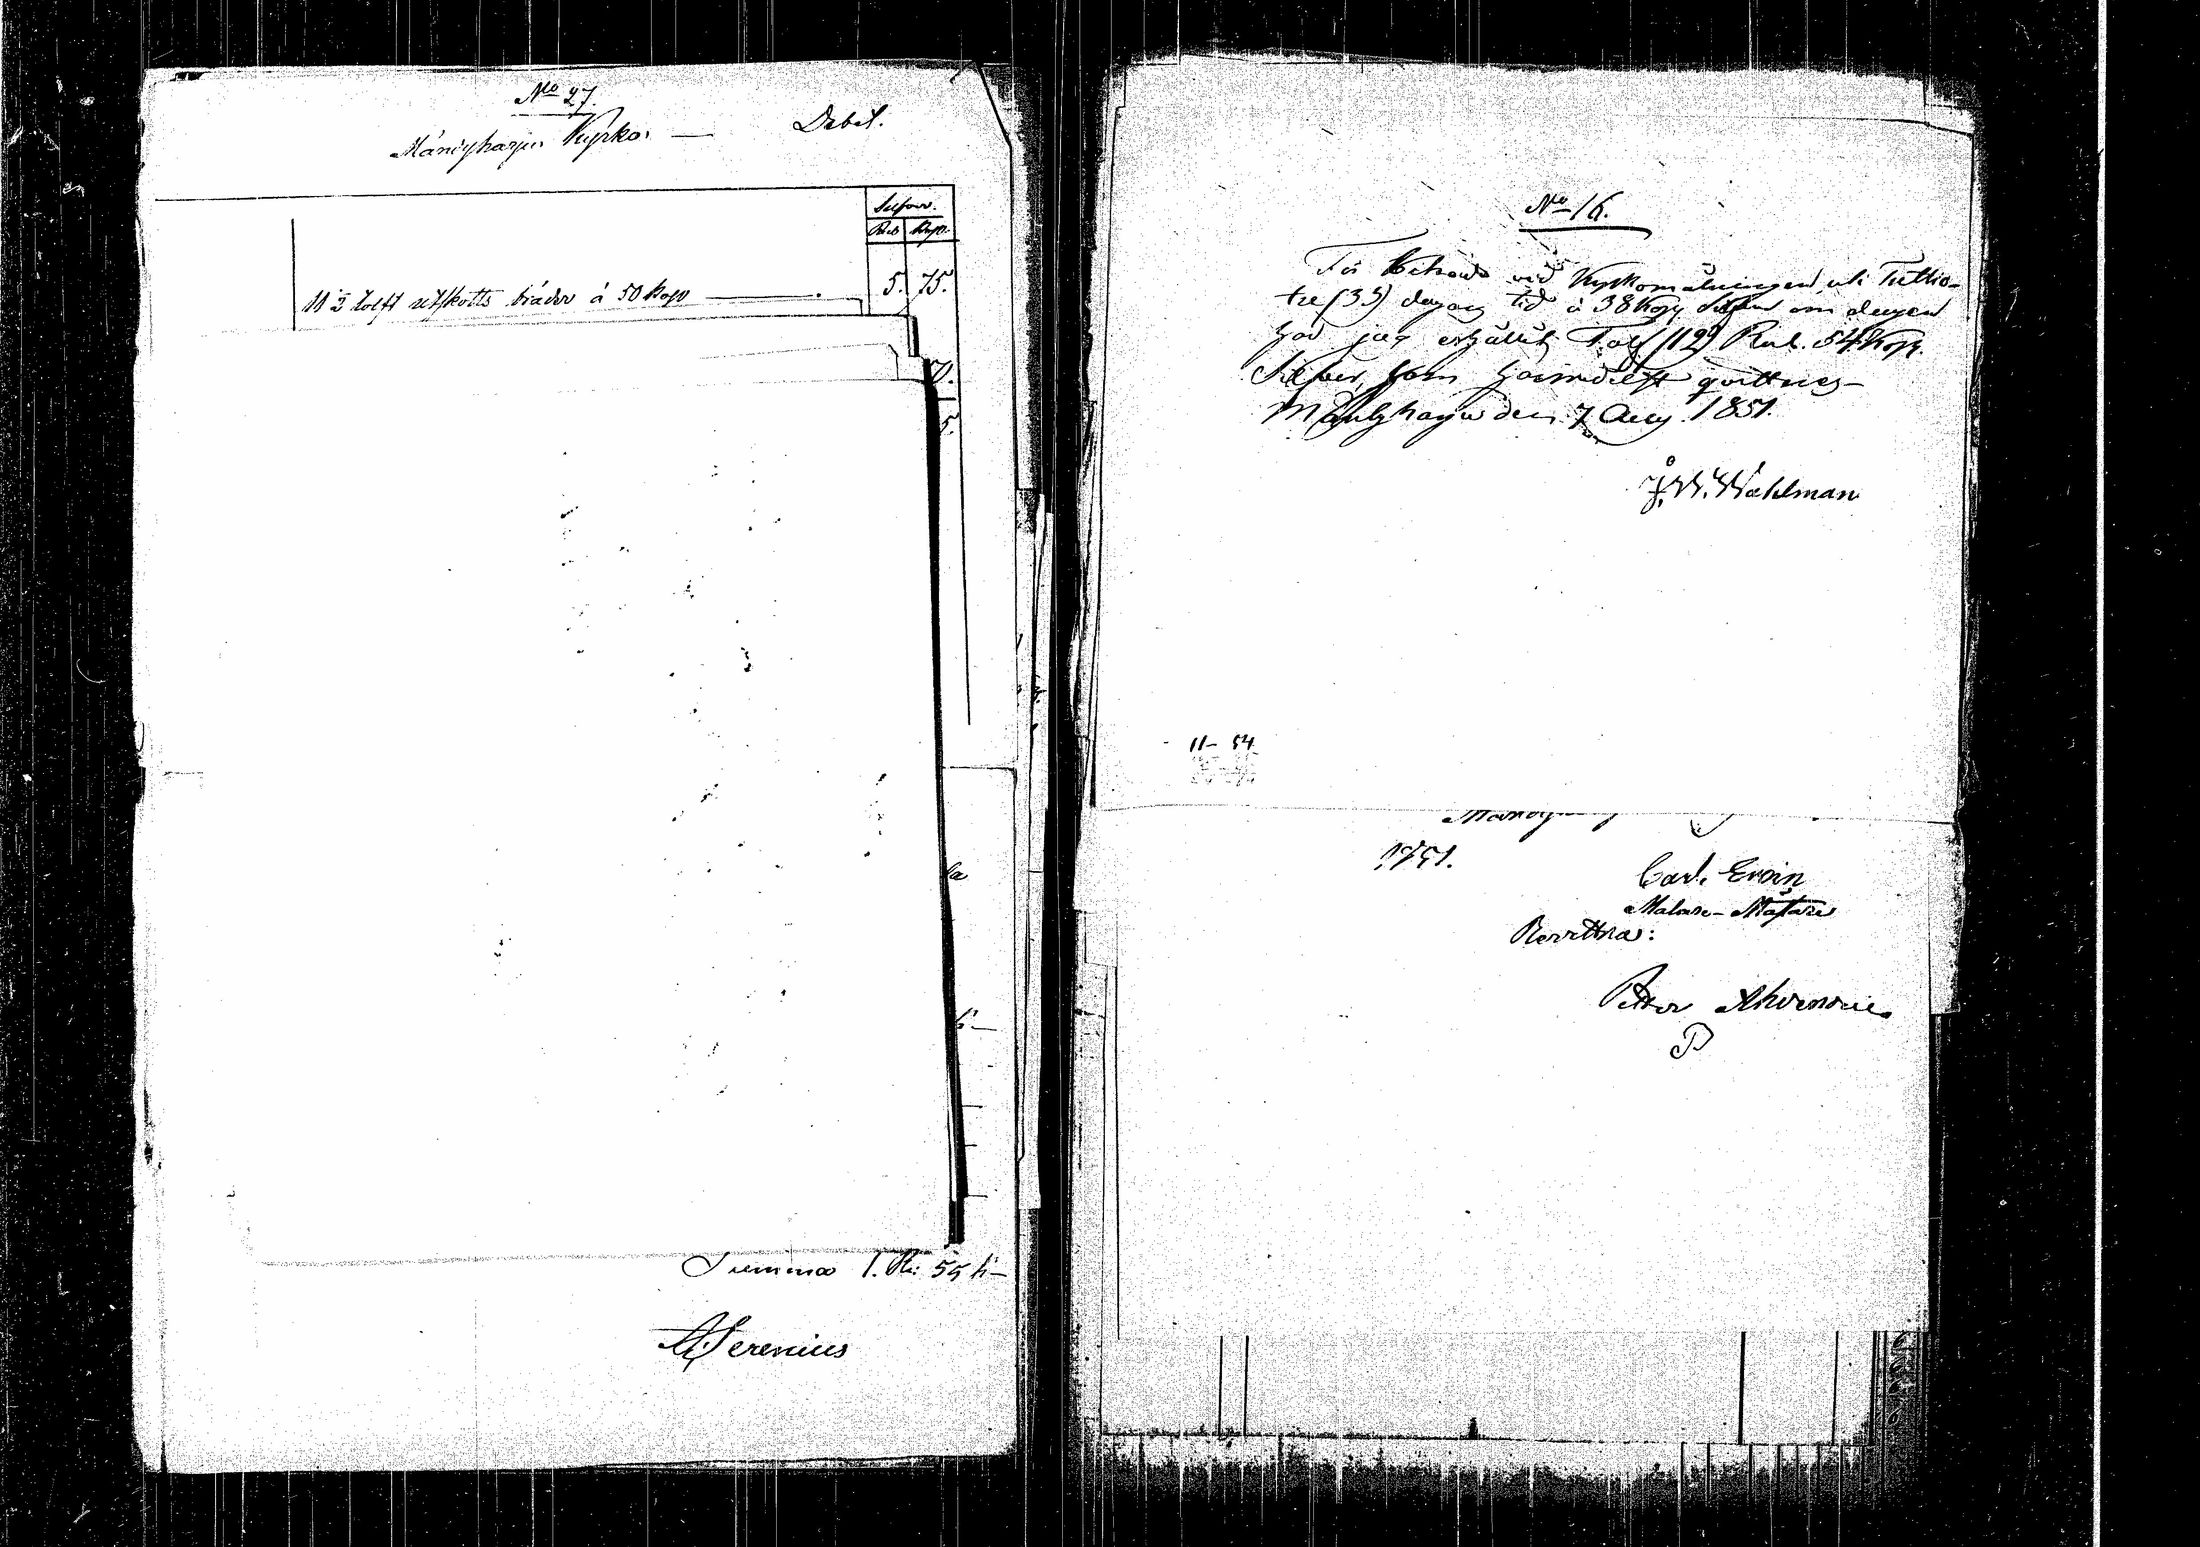 No 27.
Mäntyharju Kyrka — Debet.
Silfver.
Rub Kop.
11 ½ tolft utskotts bräder á 50 Kop — 5. 75.
5.
la
Summa 1. Ru 55 k—
Serenius
No 16.
För biträde vid Kyrkomålningen uti Trettio-
tre (33) dagars tid á 38 Kop Silfver om dagen
har jag erhållit Tolf (12) Rub. 54 Kop.
Silfver, som härmedelst qvitteras—
Mäntyharju den 7 Aug. 1851.
J. W. Wahlman
11— 54
1851.
Carl
Målare-Mästare
Petter
P